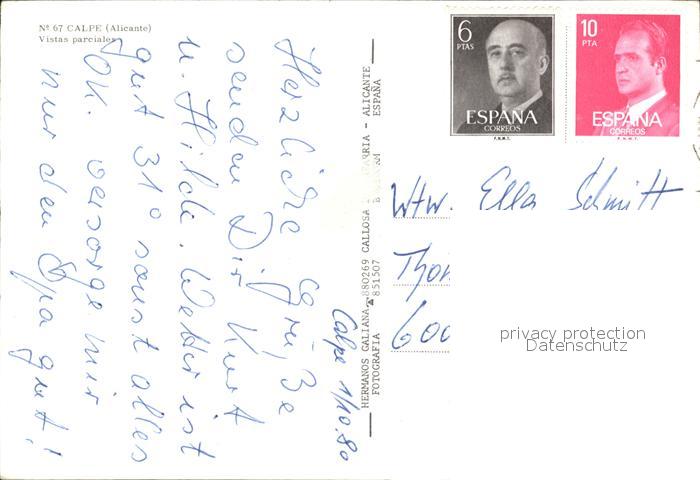 Nº 67 CALPE (Alicante)
Vistas parciales
Herzliche Grüße
senden Dir Kurt
u. Hilde. Wetter ist
gut 31° sonst alles
OK. versorge mir
nur den Opa gut!
Calpe 1/10.80
HERMANOS GALIANA 880269 CALLOSA ARRIA - ALICANTE
FOTOGRAFIA 851507 ESPAÑA
6
PTAS
ESPAÑA
CORREOS
F.N.M.T.
10
PTA
ESPAÑA
CORREOS
F.N.M.T.
Wtw. Ella Schmitt
Thon
600
privacy protection
Datenschutz